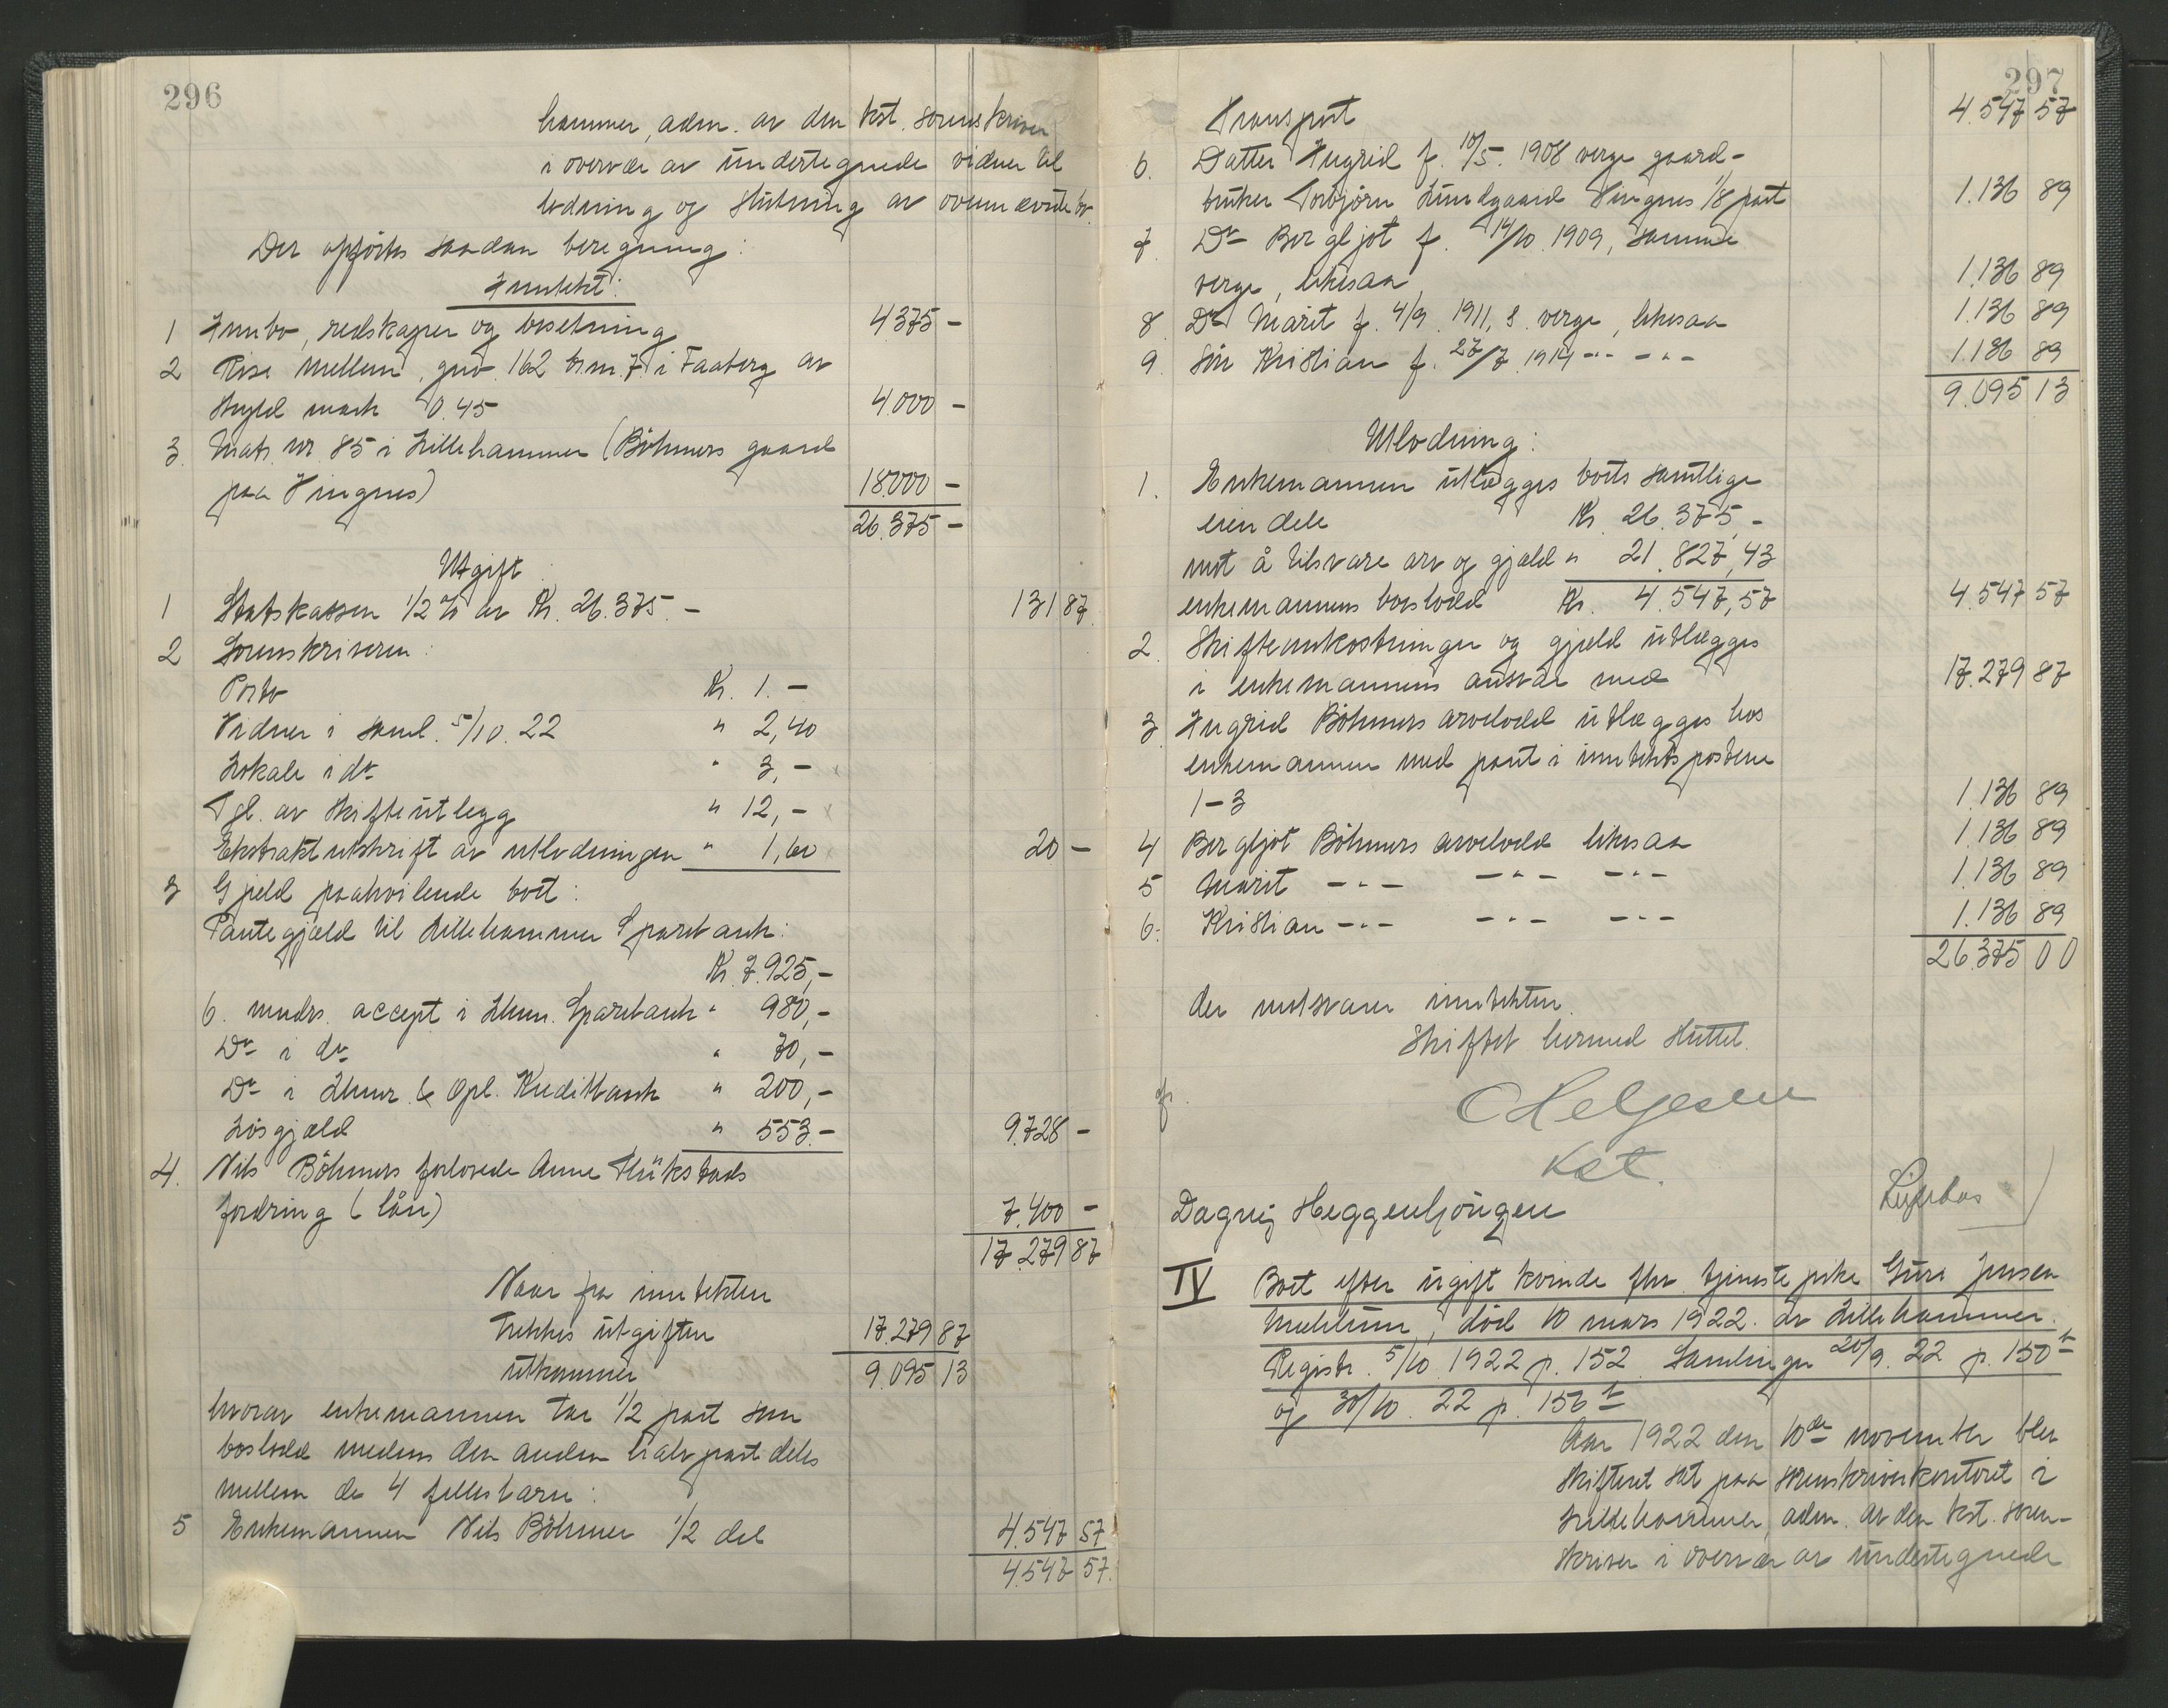 296
hammer, adm. av den kst. sorenskriver
i overvær av undertegnede vidner til
lodning og slutning av ovennævnte bo.
Der opførtes saadan beregning:
Inntekt:
1 Innbo, redskaper og besetning 4375 -
2 Rise mellem, gno. 162 br.nr. 7 i Faaberg av
skyld mark 0.45 4.000 -
3. Matr. nr. 85 i Lillehammer (Böhmers gaard
paa Vingnes) 18000 -
26.375 -
Utgift
1 Statskassen 1/2 % av Kr. 26.375. - 131 87
2 Sorenskriveren:
Porto Kr. 1. -
Vidner i saml. 5/10. 22 " 2,40
Lokale i do " 3, -
Tgl. av skifteutlegg " 12, -
Ekstraktutskrift av utlodningen " 1,60 20 -
3 Gjeld paahvilende boet:
Pantegjæld til Lillehammer Sparebank:
Kr. 7.925, -
6. mndrs. accept i Lhmr. Sparebank " 980, -
Do i do " 70, -
Do i Lhmr. & Opl. Kreditbank " 200, -
Løsgjæld " 553. - 9.728 -
4. Nils Böhmers forlovede Anne
fordring (lån) 7.400 -
17.279 87
Naar fra inntekten
trekkes utgiften 17.279 87
utkommer 9.095 13
hvorav enkemannen tar 1/2 part som
boslodd medens den anden halvpart deles
mellem de 4 fellesbarn:
5 Enkemannen Nils Böhmer 1/2 del 4.547 57
4.547 57.
297
Transport 4.547 57
6. Datter Ingrid f. 10/5. 1908 verge gaard-
bruker Torbjørn Lundgaard Vingnes 1/8 part 1.136 89
7. Do Bergljot f. 14/10. 1909, samme
verge, likesaa 1.136 89
8 Do Marit f. 4/9. 1911, s. verge, likesaa 1.136 89
9. Søn Kristian f. 27/7. 1914 -"- -"- 1.136 89
9.095 13
Utlodning:
1. Enkemannen utlægges boets samtlige
eiendele Kr. 26.375, -
mot å tilsvare arv og gjæld " 21.827,43
enkemannens boslodd Kr. 4.547,57 4.547 57
2. Skifteomkostninger og gjæld utlægges
i enkemannens ansvar med 17.279 87
3 Ingrid Böhmers arvelodd utlægges hos
enkemannen med pant i inntektspostene
1-3 1.136 89
4 Bergljot Böhmers arvelodd likesaa 1.136 89
5 Marit -"- -"- -"- 1.136 89
6. Kristian -"- -"- -"- 1.136 89
26.375 00
der motsvarer inntekten.
Skiftet hermed sluttet.
CHelgesen
Kst.
Dagny Heggenhougen
IV Boet efter ugift kvinde fhv. tjenestepike Guri Jensen
Mæhlum, død 10 mars 1922. av Lillehammer.
Registr. 5/10 1922 p. 152 Samlinger 20/9. 22 p. 150 b
og 30/10. 22 p. 156 b
Aar 1922 den 10de november blev
skifteret sat paa sorenskriverkontoret i
Lillehammer, adm. av den kst. soren-
skriver i overvær av undertegnede